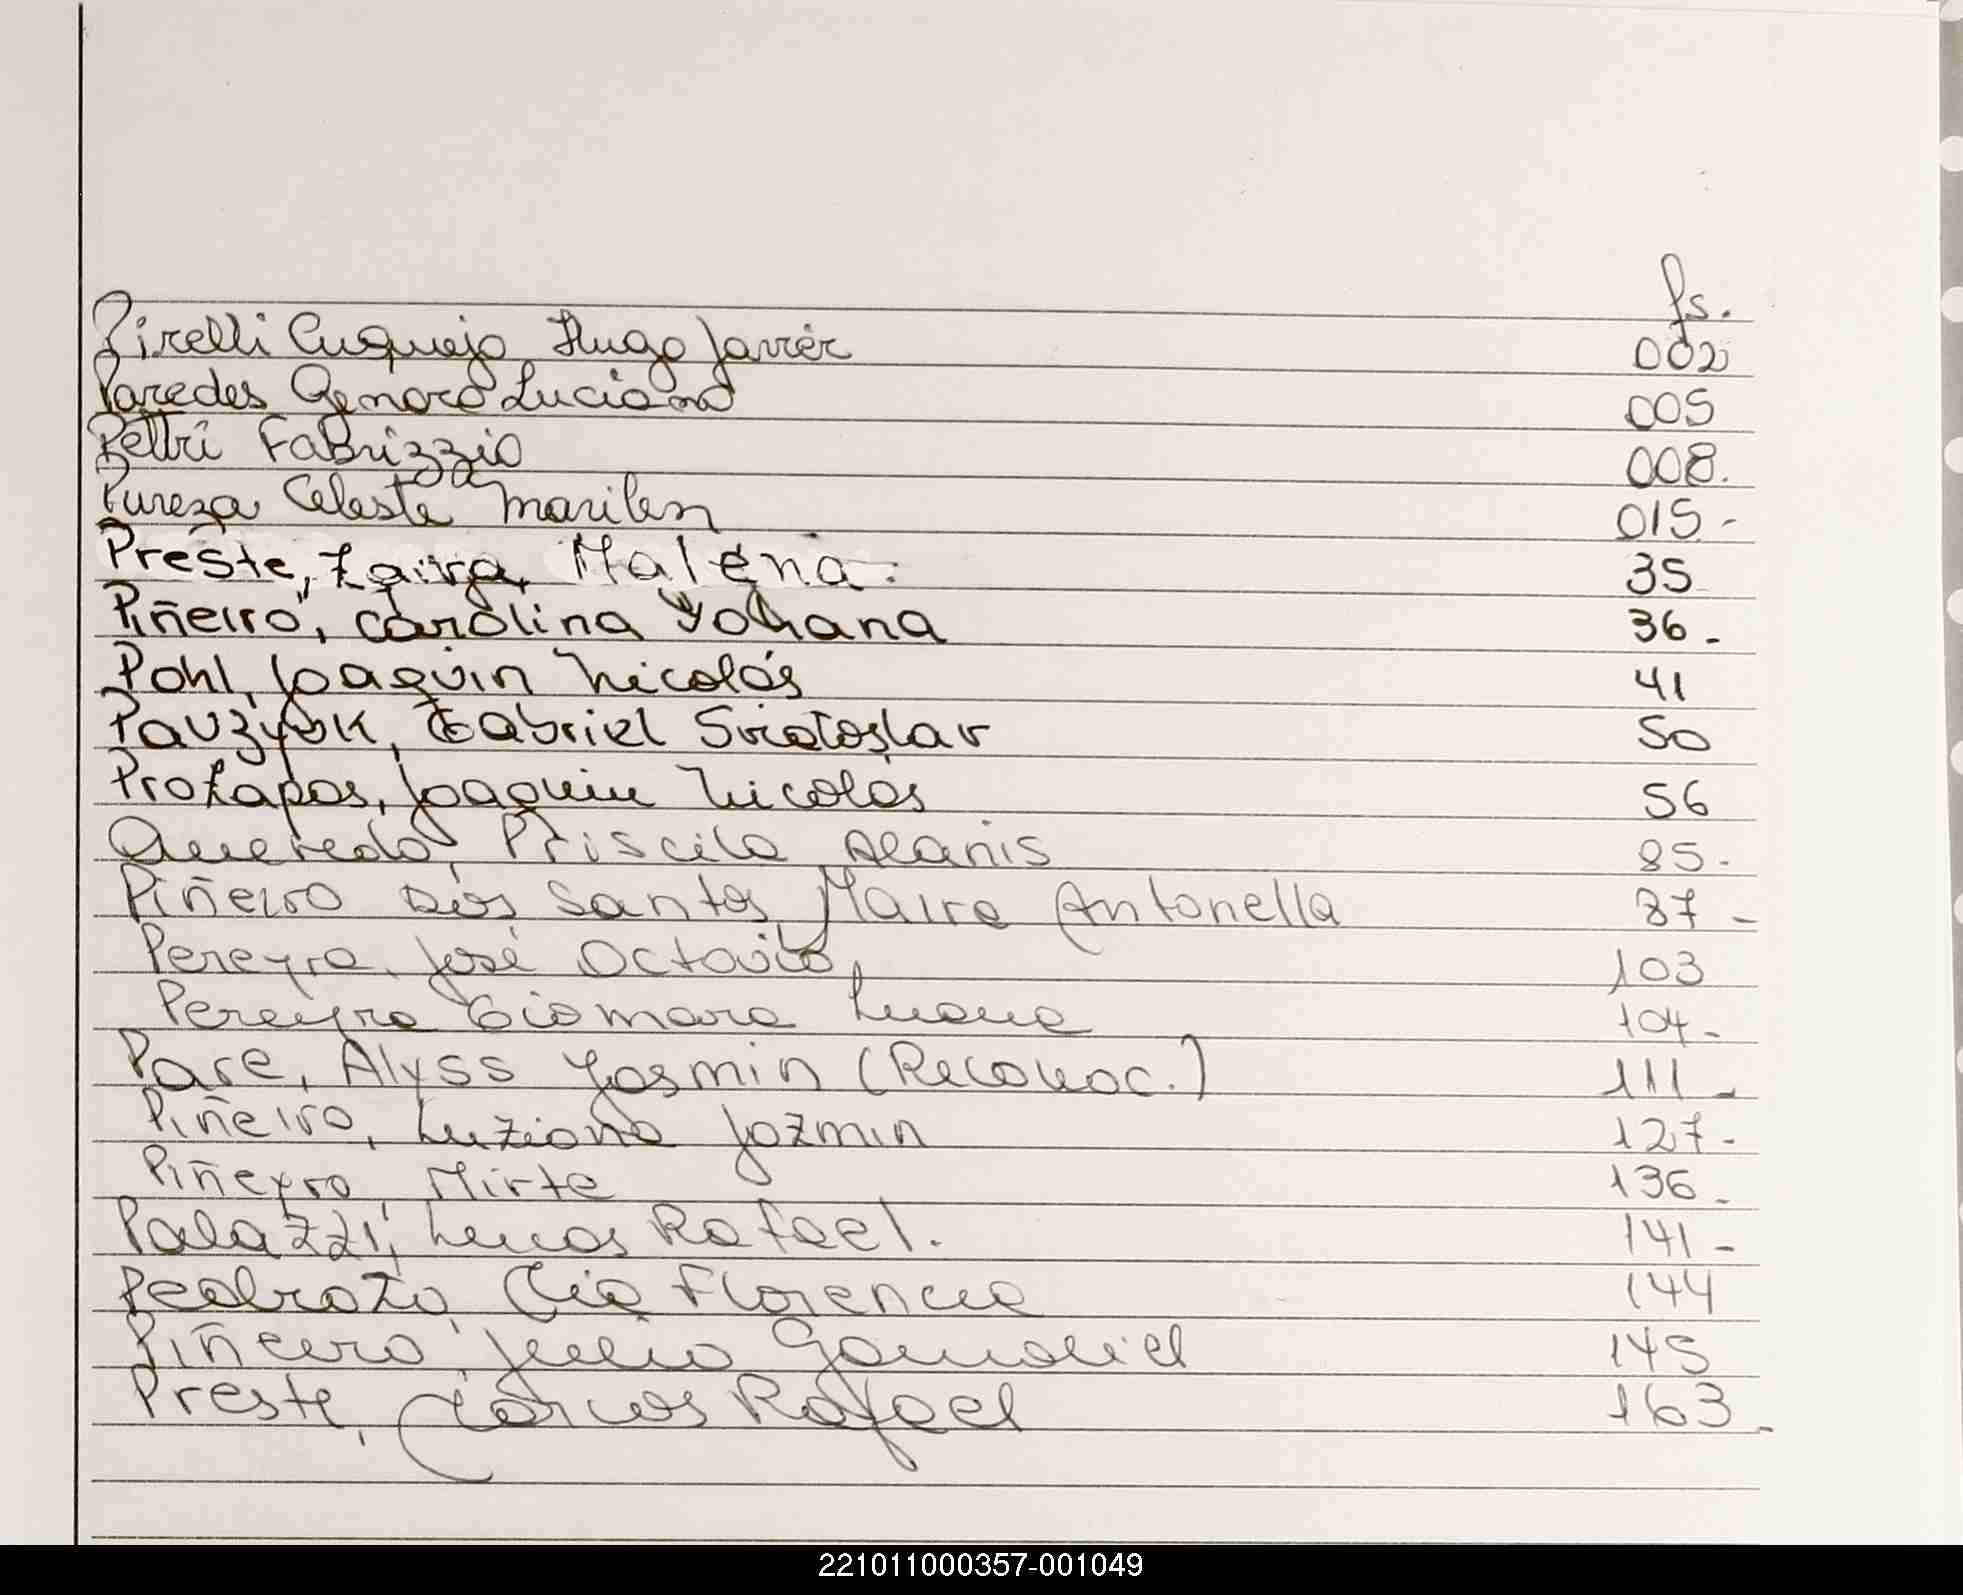 fs.
Pirelli Cuquejo Hugo Javier 002
Paredes Genaro Luciano 005
Pettri Fabrizzio 008.
Pureza Celeste Marilen 015-
Preste, Zaira Malena. 35
Piñeiro, Carolina Yohana 36-
Pohl, Joaquin Nicolás 41
Pavzyok, Gabriel Sviatoslav 50
Protapos, Joaquin Nicolás 56
Quevedo, Priscila Alanis 85-
Piñeiro Dos Santos, Maira Antonella 87-
Pereyra, José Octavio, 103
Pereyra Giomara Luana 104-
Pare, Alyss Yasmin (Reconoc.) 111-
Piñeiro, Luziana Jazmin 127-
Piñeyro, Mirta 136-
Palazzi, Lucas Rafael. 141-
Pedrozo, Lia Florencia 144
Piñeiro, Julio Gamaliel 145
Preste, Marcos Rafael 163-
221011000357-001049